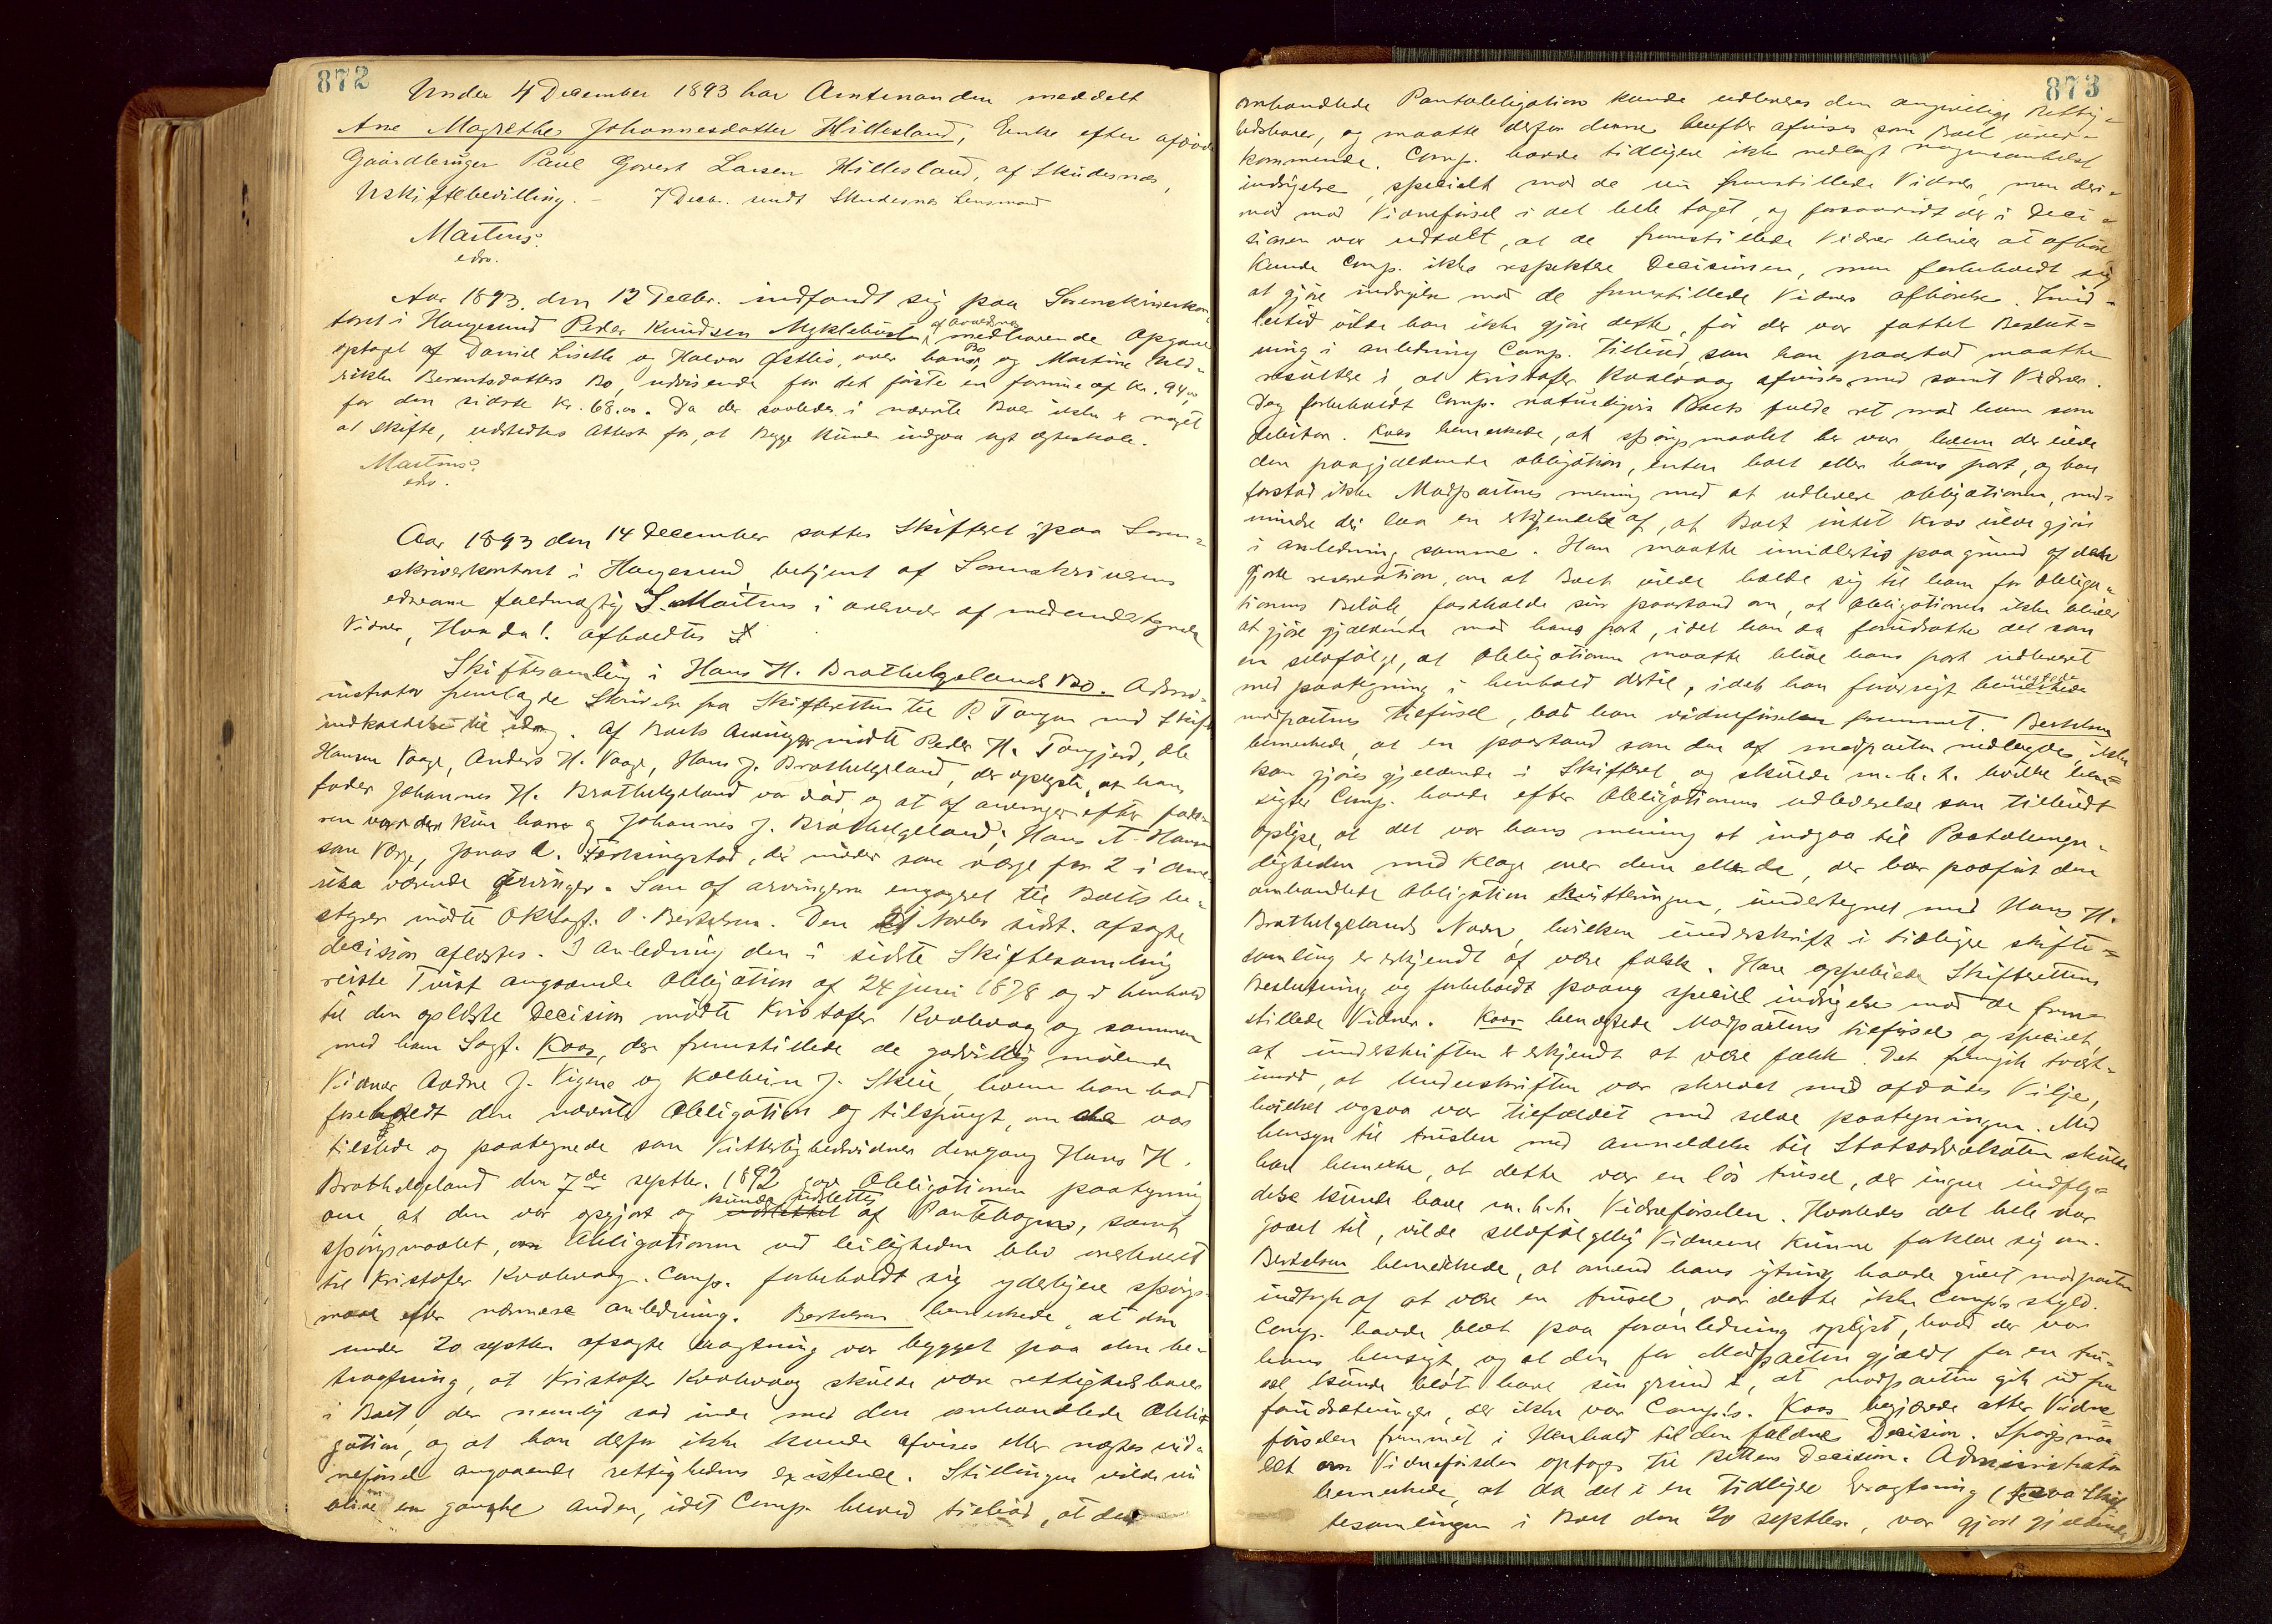 872
Under 4 December 1893 har Amtmanden meddelt
Ane Magrethe Johannesdatter Hillesland, Enke efter afdøde
Gaardbruger Paul Govert Larsen Hillesland, af Skudesnes,
Uskiftebevilling. - 7 Decbr. sendt Skudesnes Lensmand
Martens.
edsv.
Aar 1893, den 12 Decbr. indfandt sig paa Sorenskriverkon-
toret i Haugesund Peder Knudsen Myklebust af Avaldsnes medhavende Opgave
optaget af Daniel Liselle og Halvor Østhus, over hans Bo, og Martine Hed-
rikke Berentsdatters Bo, udvisende for det første en formue af Kr. 94,00
for den sidste Kr. 68.00. Da der saaledes i nævnte Boer ikke er noget
at skifte, udstedtes Attest for, at Begge kunde indgaa nyt ægteskab.
Martens.
edsv.
Aar 1893 den 14 December sattes Skifteret paa Soren-
skriverkontoret i Haugesund betjent af Sorenskriverens
edsvorne fuldmægtig S. Martens i overvær af medundertegnede
Vidner, Hvorda! afholdtes
Skiftesamling i Hans H. Brathelgelands Bo. Admi-
nistrator fremlagde Skrivelse fra Skifteretten til P. Tangen med Skifte
indkaldelse til idag. Af Boets Arvinger mødte Peder H. Tangjerd, Ole
Hansen Vaage, Anders H. Vaage, Hans J. Brathelgeland, der oplyste, at hans
fader Johannes H. Brathelgeland var død og at af arvinger efter fade-
ren var der kun ham og Johannes J. Brathelgeland, Hans A. Hansen
som Verge, Jonas A. Ferkingstad, der møder som verge for 2 i Ame-
rika værende arvinger. Som af arvingerne engageret til Boets be-
styrer mødte ORSagf. O. Bertelsen. Den 21 Novbr sidst. afsagte
decision aflæstes. I anledning den i sidste Skiftesamling
reiste Tvist angaaende Obligation af 24 juni 1878 og i henhold
til den oplæste Decision mødte Kristofer Kvalevaag og sammen
med ham Sagf. Kaas, der fremstillede de godvillig mødende
Vidner Aadne J. Vigene og Kolbein J. Skeie, hvem han bad
foreholdt den nævnte Obligation og tilspurgt, om de var
tilstede og paategnede som Vitterlighedsvidner dengang Hans H.
Brathelgeland den 7de septbr. 1892 gav Obligationen paategning
om, at den var opgjort og kunde udslettes af Pantebogen, samt
spørgsmaalet, om Obligationen ved leiligheden blev overleveret
til Kristofer Kvalevaag. Comp. forbeholdt sig yderligere spørgs-
maal efter nærmere anledning. Bertelsen bemerkede, at den
under 20 septbr afsagte eragtning var bygget paa den be-
tragtning, at Kristofer Kvalevaag skulde være rettighedshaver
i Boet, der nemlig sad inde med den omhandlede Obli-
gation, og at han derfor ikke kunde afvises eller nægtes vid-
neførsel angaaende rettighedens existence. Stillingen vilde nu
blive en ganske anden, idet Comp. herved tilbød, at den
873
omhandlede Pantobligation kunde udleveres den angivelige Rettig-
hedshaver, og maatte derfor denne herefter afvises som Boet uved-
kommende. Comp. havde tidligere ikke nedlagt nogensomhelst
indsigelse, specielt mod de nu fremstillede Vidner, men der-
mod mod Vidneførsel i det hele taget, og forsaavidt der i Deci-
sionen var udtalt, at de fremstillede Vidner bliver at afhøre
kunde Comp. ikke respektere Decisionen, men forbeholdt sig
at gjøre indsigelse mod de fremstillede Vidners afhørelse. Imid-
lertid vilde han ikke gjøre dette, før der var fattet Beslut-
ning i anledning Comp. tilbud, som han paastod maatte
resultere i, at Kristofer Kvalevaag afvises med samt Vidner.
Dog forbeholdt Comp. naturligvis Boets fulde ret mod ham som
debitor. Kaas bemerkede, at spørgsmaalet her var, hvem der eiede
den paagjældende obligation, enten boet eller hans part, og han
forstod ikke Modpartens mening med at udlevere obligationen, med-
mindre der laa en erkjendelse af, at Boet intet krav vilde gjøre
i anledning samme. Han maatte imidlertid paa grund af den
gjorte reservation, om at Boet vilde holde sig til ham for Obliga-
tionens Beløb, fastholde sin paastand om, at Obligationen ikke bliver
at gjøre gjældende mod hans part, idet han da forudsatte det som
en selvfølge, at Obligationen maatte blive hans part udleveret
med paategning i henhold dertil, idet han forøvrigt benegtede
modpartens tilførsel, bad han vidneførselen fremmet. Bertelsen
bemerkede, at en paastand som den af modparten nedlagde, ikke
kan gjøres gjeldende i Skifteret, og skulde m.h.t. hvilke hen-
sigter Comp. havde efter Obligationens udleverelse som tilbudt
oplyse, at det var hans mening at indgaa til Paatalemyn-
digheden med Klage over dem eller de, der har paaført den
omhandlede Obligation kvitteringen, undertegnet med Hans H.
Brathelgelands Navn, hvilken underskrift i tidligere skifte-
samling er erkjendt at være falsk. Han opfordrede Skifteretten
Beslutning og forbeholdt paany speciel indsigelse mod de frem-
stillede Vidner. Kaas benægtede Modpartens tilførsel og specielt,
at underskriften er erkjendt at være falsk. Det fremgik tvært-
imod, at Underskriften var skrevet med afdødes Vilje,
hvilket ogsaa var tilfældet med selve paategningen. Med
hensyn til truslen med anmeldelse til Statsadvokaten skulde
han bemerke, at dette var en løs trusel, der ingen indfly-
delse kunde have m.h.t. Vidneførselen. Hvorledes det hele var
gaaet til, vilde selvfølgelig Vidnerne kunne forklare sig om.
Bertelsen bemerkede, at omend hans ytring havde givet modparten
indtryk af at være en trusel, var dette ikke Comp's skyld.
Comp. havde blot paa foranledning oplyst, hvad der var
hans hensigt, og at den for Modparten gjældt for en tru-
sel kunde blot have sin grund i, at modparten gik ud fra
forudsetninger, der ikke var Comp's. Kaas begjærede atter Vidne-
førselen fremmet i Henhold til den faldne Decision. Spørgsmaa-
let om Vidneførselen optages til Rettens Decision. Administrator
bemerkede, at da det i en tidligere Eragtning (fra Skif-
tesamlingen i Boet den 20 septbr., var gjort gjeldende